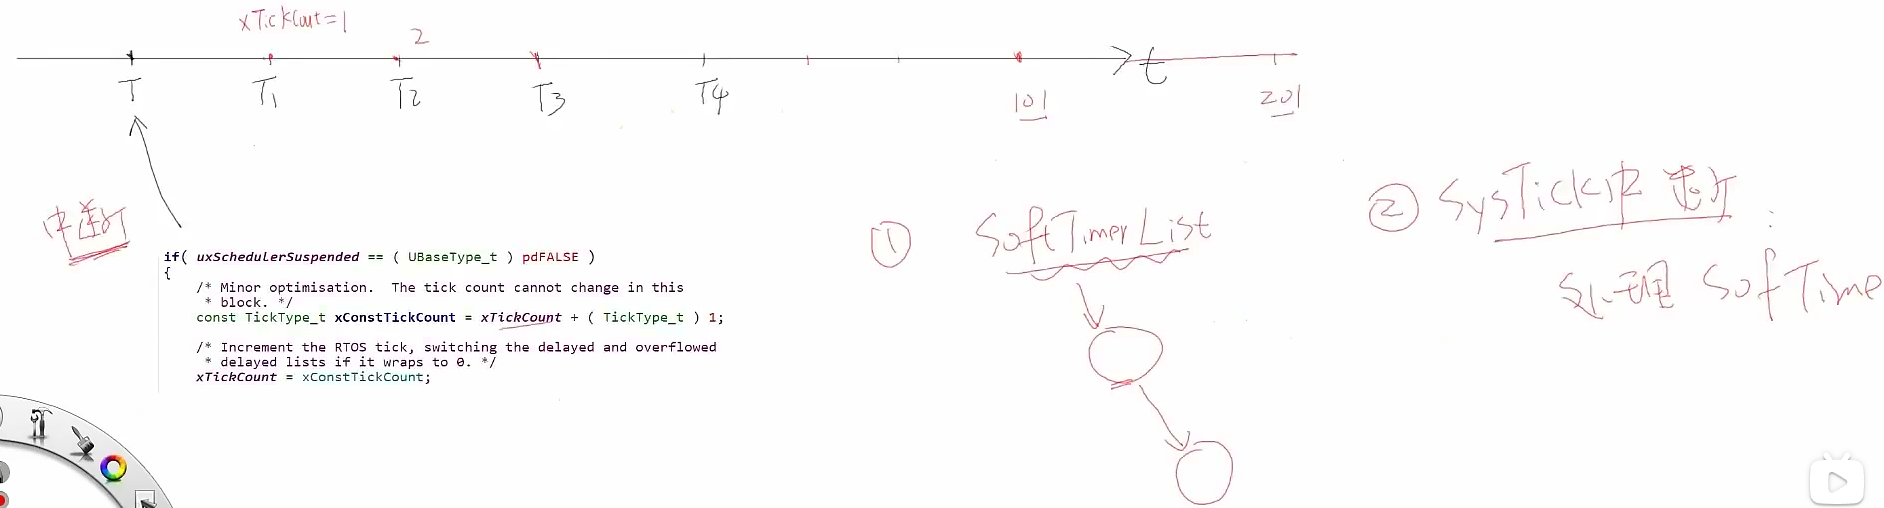 xTickCout=1
2
T T1 T2 T3 T4 101 t 201
中断
if( uxSchedulerSuspended == ( UBaseType_t ) pdFALSE )
{
/* Minor optimisation.  The tick count cannot change in this
* block. */
const TickType_t xConstTickCount = xTickCount + ( TickType_t ) 1;
/* Increment the RTOS tick, switching the delayed and overflowed
* delayed lists if it wraps to 0. */
xTickCount = xConstTickCount;
① SoftTimer List
② SysTick中断:
处理 SofTime